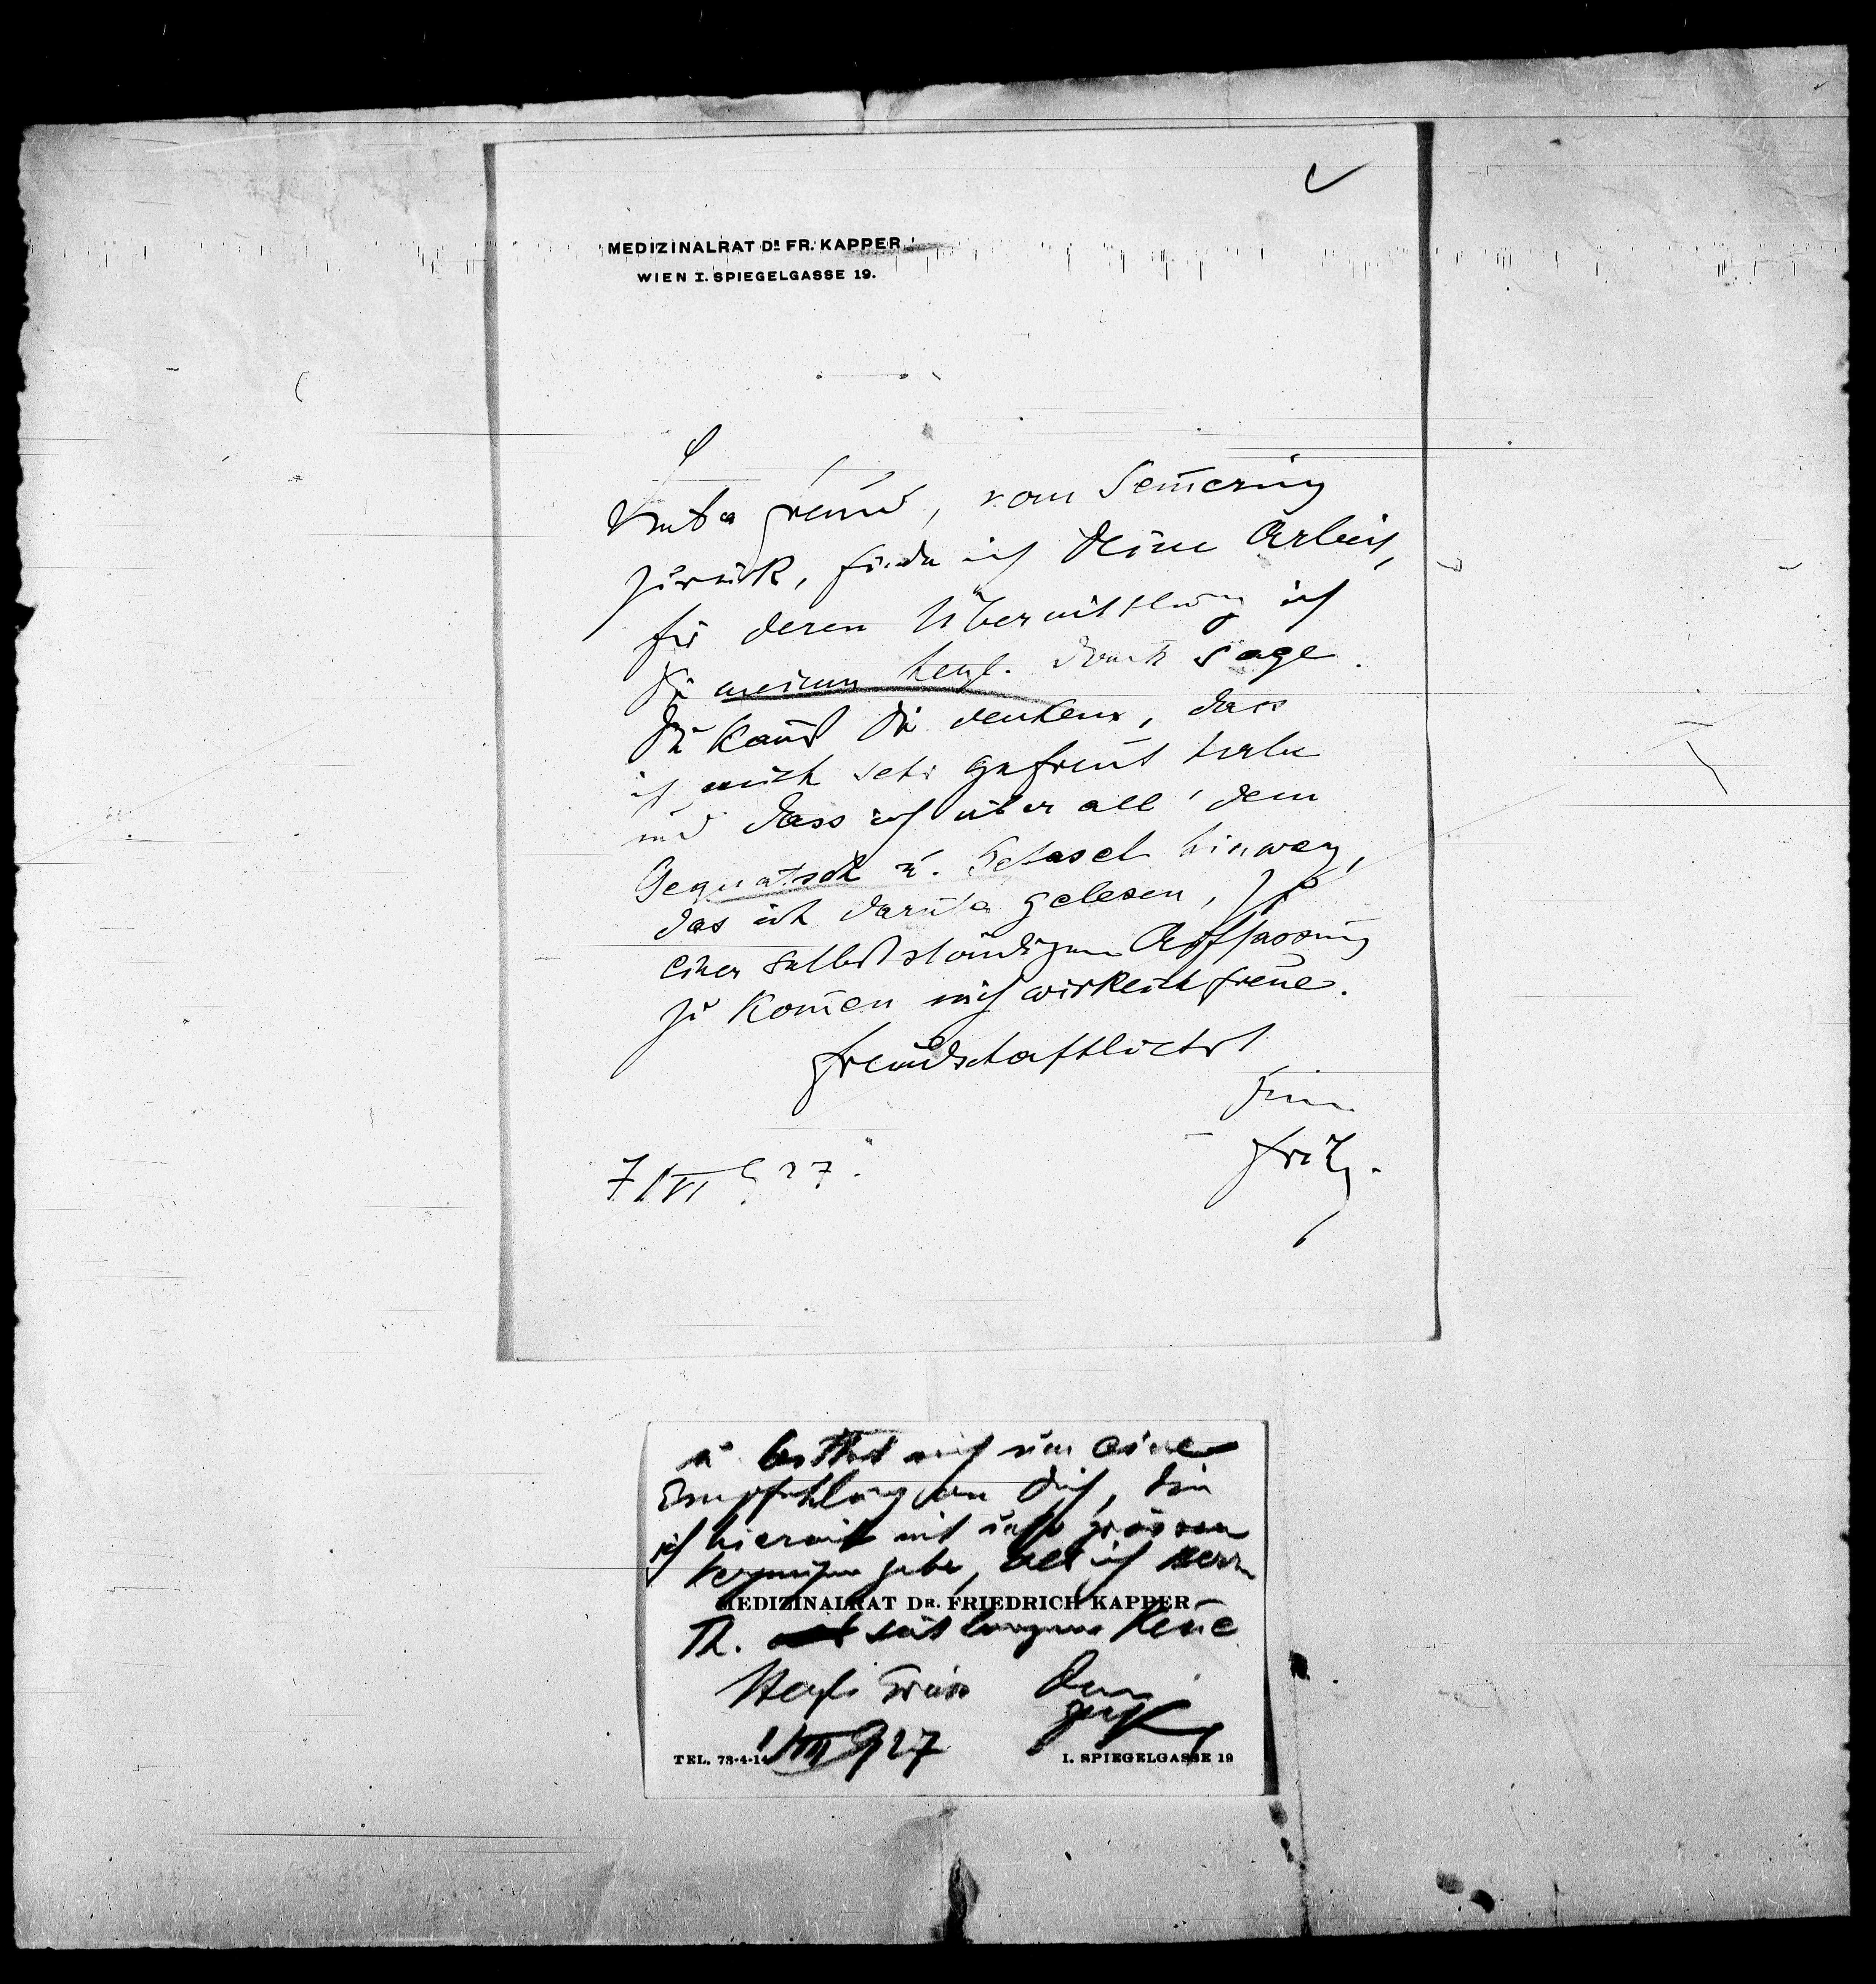 MEDIZINALRAT DR. FR. KAPPER
WIEN I. SPIEGELGASSE 19.
Freund, vom Sem̄ering
zurück, finde ich Deine Arbeit,
für deren Übermittlung ich
Dir meinen herzl. Dank sage.
Du kan̄st Dir denken, dass
ich mich sehr gefreut habe
und dass ich über all' dem
Gequatsch u.  hinweg,
das ich darüber gelesen, zu
einer selbstständigen Auffassung
zu kom̄en mich wirklich freue.
freundschaftlichst
Dein
Fritz.
7/VI 927.
u. bittet mich um eine
Empfehlung an Dich, die
ich hiermit mit umso grösserem
Vergnügen gebe, als ich Herrn
MEDIZINALRAT DR. FRIEDRICH KAPPER
Th. seit langem kenne
Herzl. Grüsse Dein
927
TEL. 73-4-14
I. SPIEGELGASSE 19